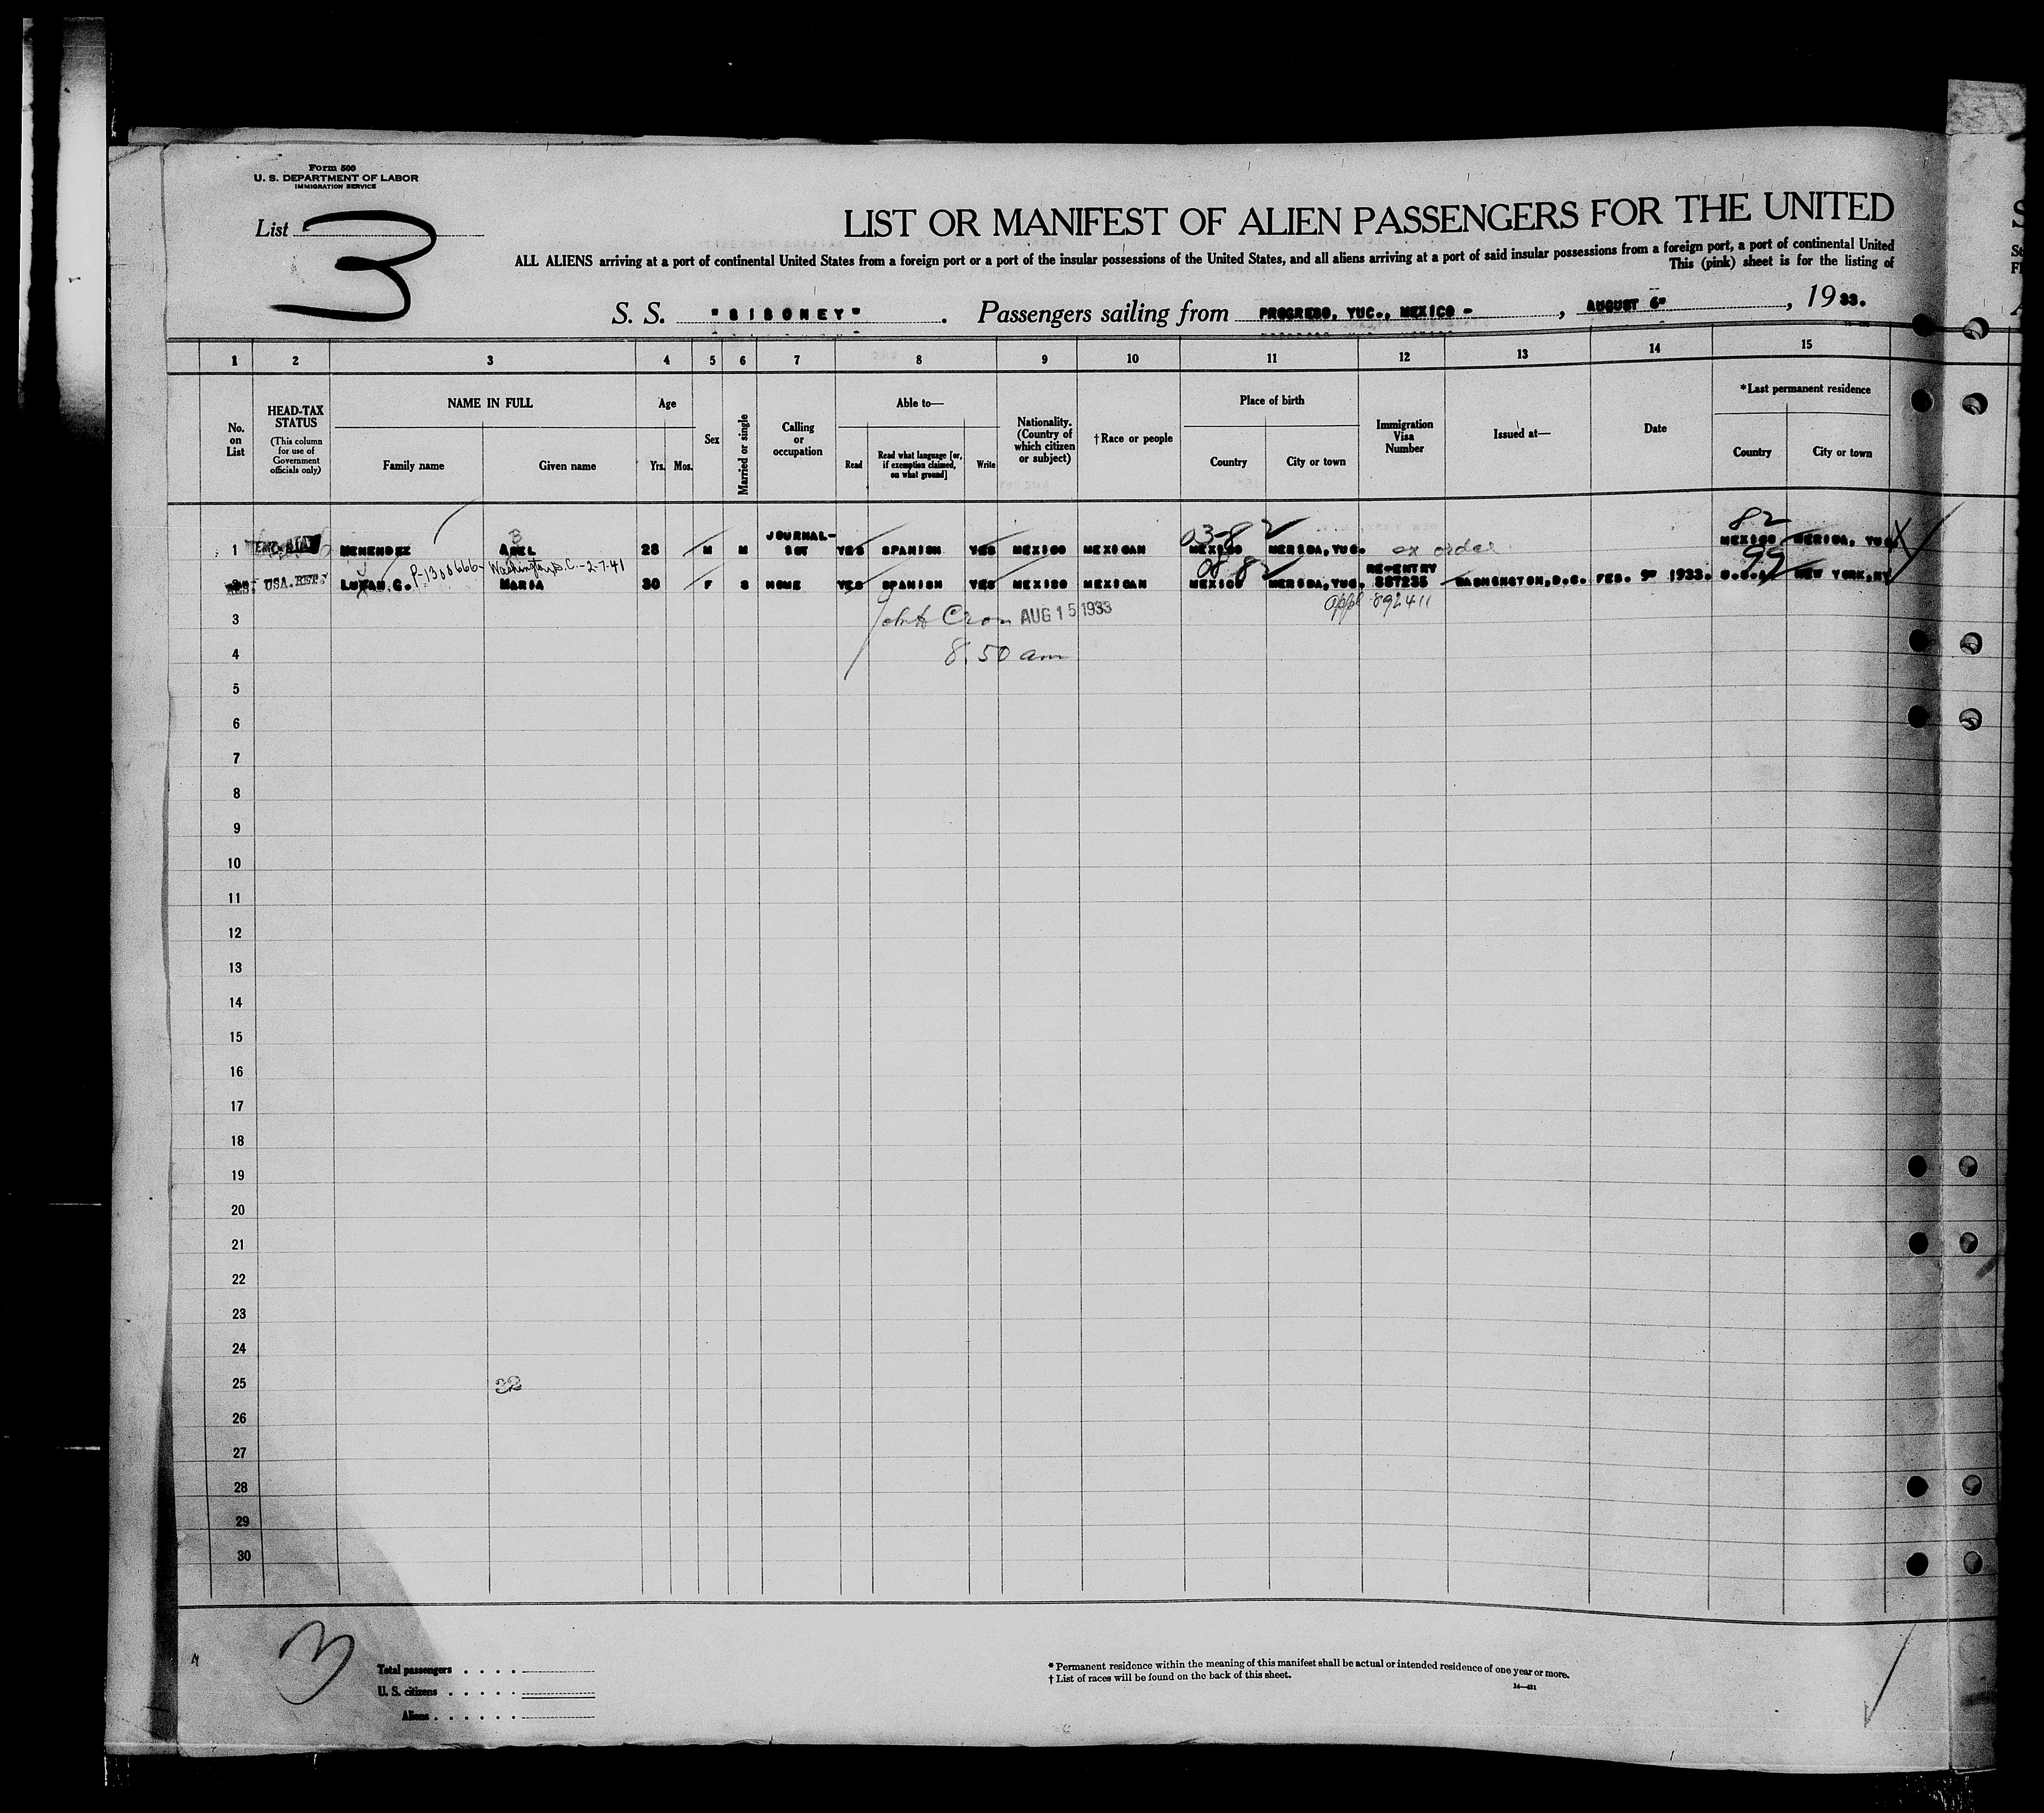 Form 500
U. S. DEPARTMENT OF LABOR
IMMIGRATION SERVICE
List 3
LIST OR MANIFEST OF ALIEN PASSENGERS FOR THE UNITED
ALL ALIENS arriving at a port of continental United States from a foreign port or a port of the insular possessions of the United States, and all aliens arriving at a port of said insular possessions from a foreign port, a port of continental United
This (pink) sheet is for the listing of
S. S. "SIBONEY" . Passengers sailing from PROGRESO, YUC., MEXICO - , AUGUST 6" , 19 33.
1 2 3 4 5 6 7 8 9 10 11 12 13 14 15
No. on List
HEAD-TAX STATUS (This column for use of Government officials only)
NAME IN FULL Family name Given name
Age Yrs. Mos.
Sex
Married or single
Calling or occupation
Able to— Read Read what language [or, if exemption claimed, on what ground] Write
Nationality. (Country of which citizen or subject)
†Race or people
Place of birth Country City or town
Immigration Visa Number
Issued at—
Date
*Last permanent residence Country City or town
03-82 82
1 MENENDEZ ABEL 28 M M JOURNAL-IST YES SPANISH YES MEXICO MEXICAN MEXICO MERIDA, YUC. ex order MEXICO MERIDA, YUC.
P-1300666- Washington, D.C.-2-7-41 99
2 USA. LUJAN G. MARIA 30 F S NONE YES SPANISH YES MEXICO MEXICAN MEXICO MERIDA, YUC. RE-ENTRY 887235 WASHINGTON, D.C. FEB. 9" 1933. U.S.A. NEW YORK, NY
3 AUG 15 1933 appl 892411
4 8.50 am
5
6
7
8
9
10
11
12
13
14
15
16
17
18
19
20
21
22
23
24
25 32
26
27
28
29
30
3
Total passengers . . . .
U. S. citizens . . . . .
Aliens . . . . . .
* Permanent residence within the meaning of this manifest shall be actual or intended residence of one year or more.
† List of races will be found on the back of this sheet.
14—421